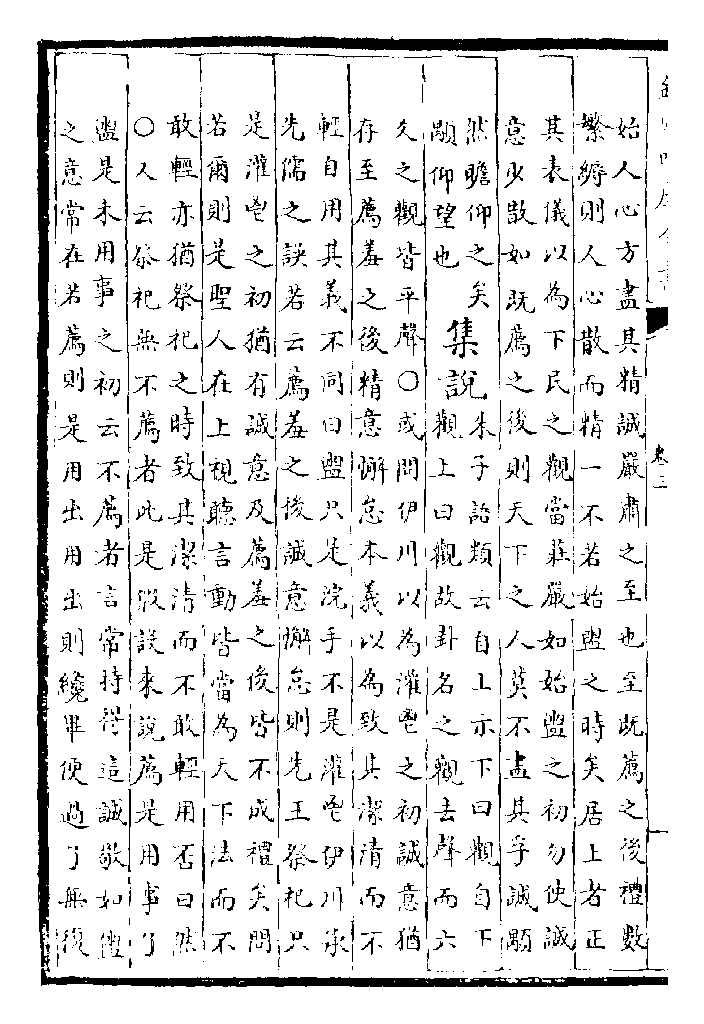 卷三
始人心方盡其精誠嚴肅之至也至既薦之後禮數
繁縟則人心散而精一不若始盥之時矣居上者正
其表儀以為下民之觀當莊嚴如始盥之初勿使誠
意少散如既薦之後則天下之人莫不盡其孚誠顒
然瞻仰之矣
顒仰望也
集說
朱子語類云自上示下曰觀自下
觀上曰觀故卦名之觀去聲而六
爻之觀皆平聲○或問伊川以為灌鬯之初誠意猶
存至薦羞之後精意懈怠本義以為致其潔清而不
輕自用其義不同曰盥只是浣手不是灌鬯伊川承
先儒之誤若云薦羞之後誠意懈怠則先王祭祀只
是灌鬯之初猶有誠意及薦羞之後皆不成禮矣問
若爾則是聖人在上視聽言動皆當為天下法而不
敢輕亦猶祭祀之時致其潔清而不敢輕用否曰然
○人云祭祀無不薦者此是假設來說薦是用事了
盥是未用事之初云不薦者言常持得這誠敬如盥
之意常在若薦則是用出用出則纔畢便過了無復